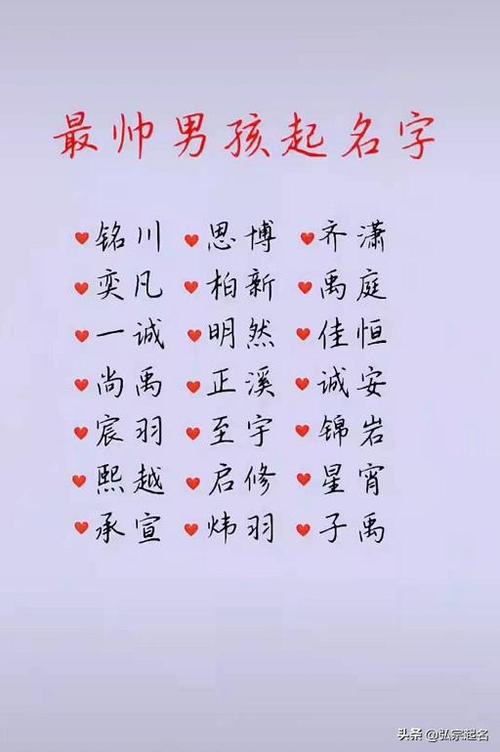 最帅男孩起名字
❤铭川 ❤思博 ❤齐潇
❤奕凡 ❤柏新 ❤禹庭
❤一诚 ❤明然 ❤佳恒
❤尚禹 ❤正溪 ❤诚安
❤宸羽 ❤至宇 ❤锦岩
❤熙越 ❤启修 ❤星宵
❤承宣 ❤炜羽 ❤子禹
头条 @弘宗起名